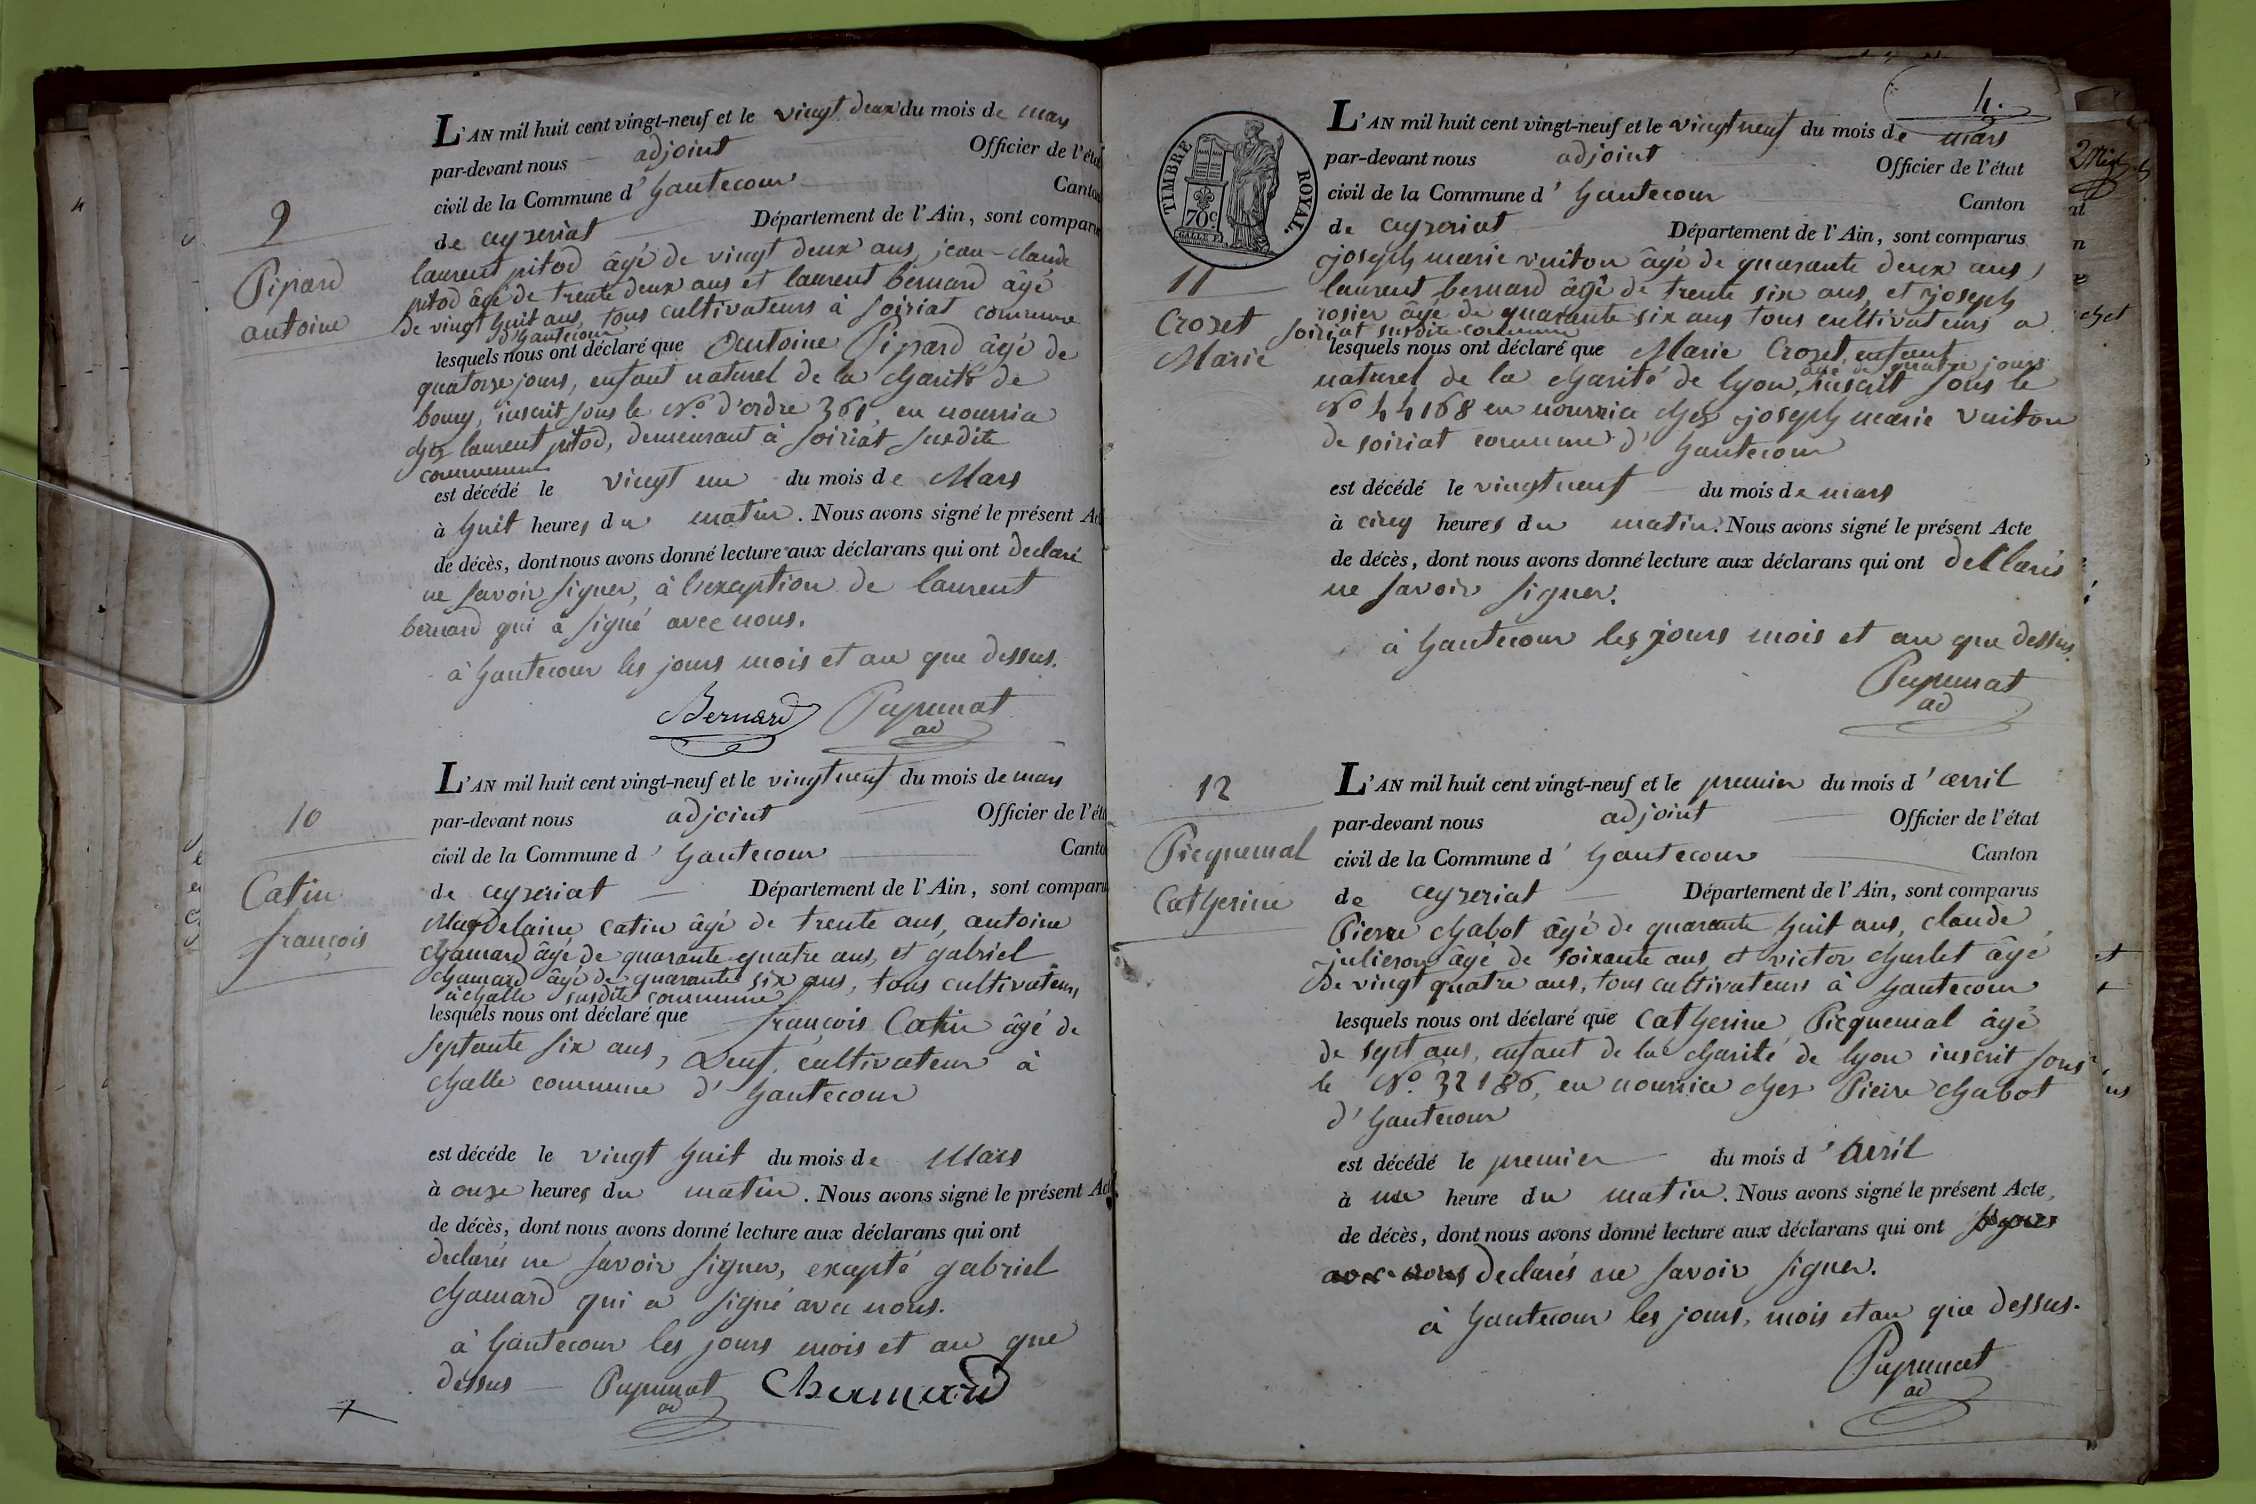 9
Pipard
antoine
L'AN mil huit cent vingt-neuf et le vingt deux du mois de mars
par-devant nous adjoint Officier de l'éta
civil de la Commune d' hautecour Canto
de ceyzeriat Département de l'Ain, sont comparu
laurent pitod âgé de vingt deux ans, jean-claude
pitod âgé de trente deux ans et laurent bernard âgé
de vingt huit ans, tous cultivateurs à soiriat commune
d'hautecour
lesquels nous ont déclaré que Antoine Pipard âgé de
quatorze jours, enfant naturel de la charité de
bourg, inscrit sous le No d'ordre 361 en nourrice
chez laurent pitod, demeurant à soiriat susdite
commune
est décédé le vingt un du mois de Mars
à huit heures du matin. Nous avons signé le présent Ac
de décès, dont nous avons donné lecture aux déclarans qui ont declaré
ne savoir signer, à l'exception de laurent
bernard qui a signé avec nous.
à hautecour les jours mois et an que dessus.
Bernard Pupunat
ad
10
Catin
françois
L'AN mil huit cent vingt-neuf et le vingt neuf du mois de mars
par-devant nous adjoint Officier de l'éta
civil de la Commune d' hautecour Canto
de ceyzeriat Département de l'Ain, sont comparu
Magdelaine catin âgé de trente ans, antoine
chamard âgé de quarante quatre ans, et gabriel
chamard âgé de quarante six ans, tous cultivateurs
à challe susdite commune
lesquels nous ont déclaré que françois Catin âgé de
septante six ans, veuf, cultivateur à
challe commune d' hautecour
est décédé le vingt huit du mois de Mars
à onze heures du matin. Nous avons signé le présent Ac
de décès, dont nous avons donné lecture aux déclarans qui ont
declarés ne savoir signer, excepté gabriel
chamard qui a signé avec nous.
à hautecour les jours mois et an que
dessus Pupunat Chamard
ad
4.
TIMBRE ROYAL
70c
11
Crozet
Marie
L'AN mil huit cent vingt-neuf et le vingt neuf du mois de mars
par-devant nous adjoint Officier de l'état
civil de la Commune d' hautecour Canton
de ceyzeriat Département de l'Ain, sont comparus
joseph marie vuiton âgé de quarante deux ans,
laurent bernard âgé de trente six ans, et joseph
rosier âgé de quarante six ans tous cultivateurs a
soiriat susdite commune
lesquels nous ont déclaré que Marie Crozet, enfant
agé de quatre jours
naturel de la charité de lyon, inscrit sous le
No 44168 en nourrice chez joseph marie vuiton
de soiriat commune d' hautecour
est décédé le vingt neuf du mois de mars
à cinq heures du matin. Nous avons signé le présent Acte
de décès, dont nous avons donné lecture aux déclarans qui ont declarés
ne savoir signer.
à hautecour les jours mois et an que dessus.
Pupunat
ad
12
Picquemal
Catherine
L'AN mil huit cent vingt-neuf et le premier du mois d'avril
par-devant nous adjoint Officier de l'état
civil de la Commune d' hautecour Canton
de ceyzeriat Département de l'Ain, sont comparus
Pierre chabot âgé de quarante huit ans, claude
julieron âgé de soixante ans et victor churlet âgé
de vingt quatre ans, tous cultivateurs à hautecour
lesquels nous ont déclaré que Catherine Picquemal âgé
de sept ans, enfant de la charité de lyon inscrit sous
le No. 32186, en nourrice chez Pierre chabot
d'hautecour
est décédé le premier du mois d'avril
à une heure du matin. Nous avons signé le présent Acte,
de décès, dont nous avons donné lecture aux déclarans qui ont signés
avec nous declarés ne savoir signer.
à hautecour les jours, mois et an que dessus.
Pupunat
ad